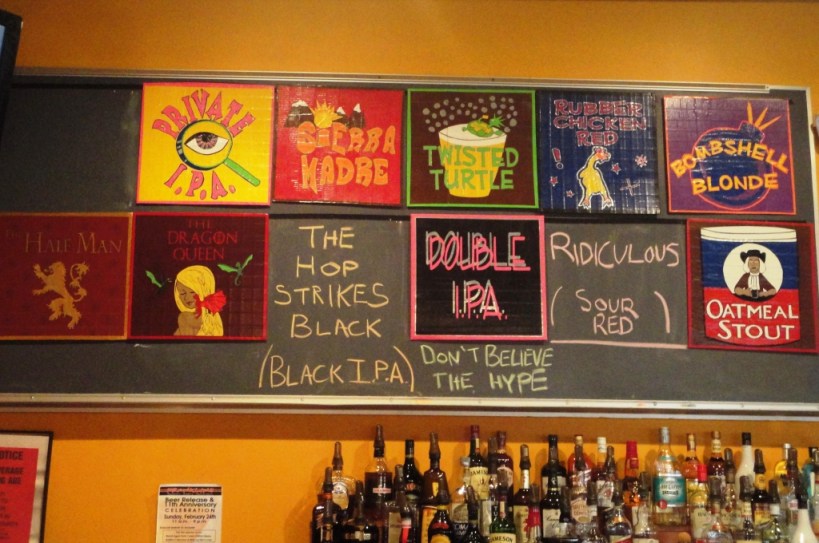 PRIVATE
EYE
I.P.A.
SIERRA
MADRE
TWISTED
TURTLE
RUBBER
CHICKEN
RED
BOMBSHELL
BLONDE
THE HALF MAN
THE
DRAGON
QUEEN
THE
HOP
STRIKES
BLACK
(BLACK I.P.A.)
DOUBLE
I.P.A.
DON'T BELIEVE
THE HYPE
RIDICULOUS
(SOUR
RED)
OATMEAL
STOUT
Beer Release &
11th Anniversary
CELEBRATION
Sunday, February 26th
JAMESON